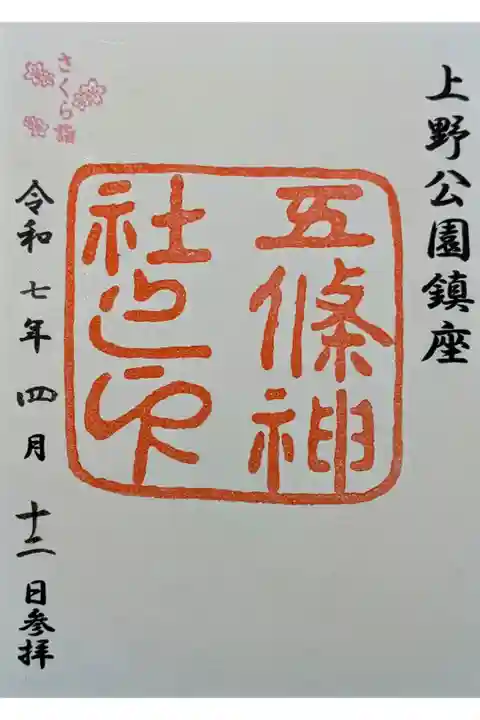 上野公園鎮座
五條神
社之印
さくら詣
令和七年四月十二日参拝